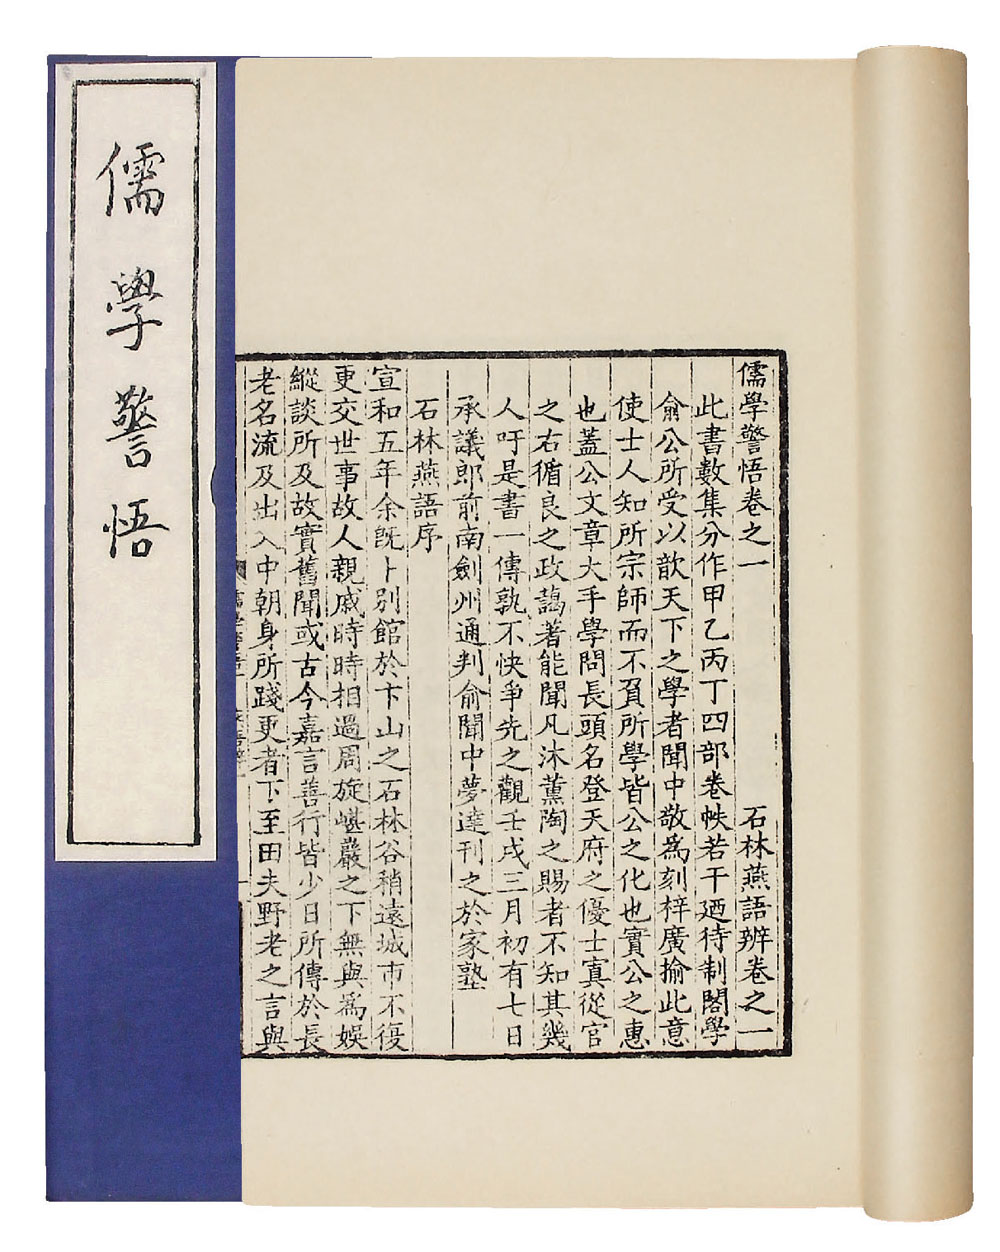 儒學警悟
儒學警悟卷之一　石林燕語辨卷之一
此書數集分作甲乙丙丁四部卷帙若干廼待制閣學
俞公所受以歆天下之學者聞中敬爲刻梓廣揄此意
使士人知所宗師而不負所學皆公之化也實公之惠
也蓋公文章大手學問長頭名登天府之優士寘從官
之右循良之政藹著能聞凡沐薰陶之賜者不知其幾
人吁是書一傳孰不快爭先之觀壬戌三月初有七日
承議郎前南劍州通判俞聞中夢達刊之於家塾
石林燕語序
宣和五年余旣卜别館於卞山之石林谷稍遠城市不復
更交世事故人親戚時時相過周旋嵁巖之下無與爲娛
縱談所及故實舊聞或古今嘉言善行皆少日所傳於長
老名流及出入中朝身所踐更者下至田夫野老之言與